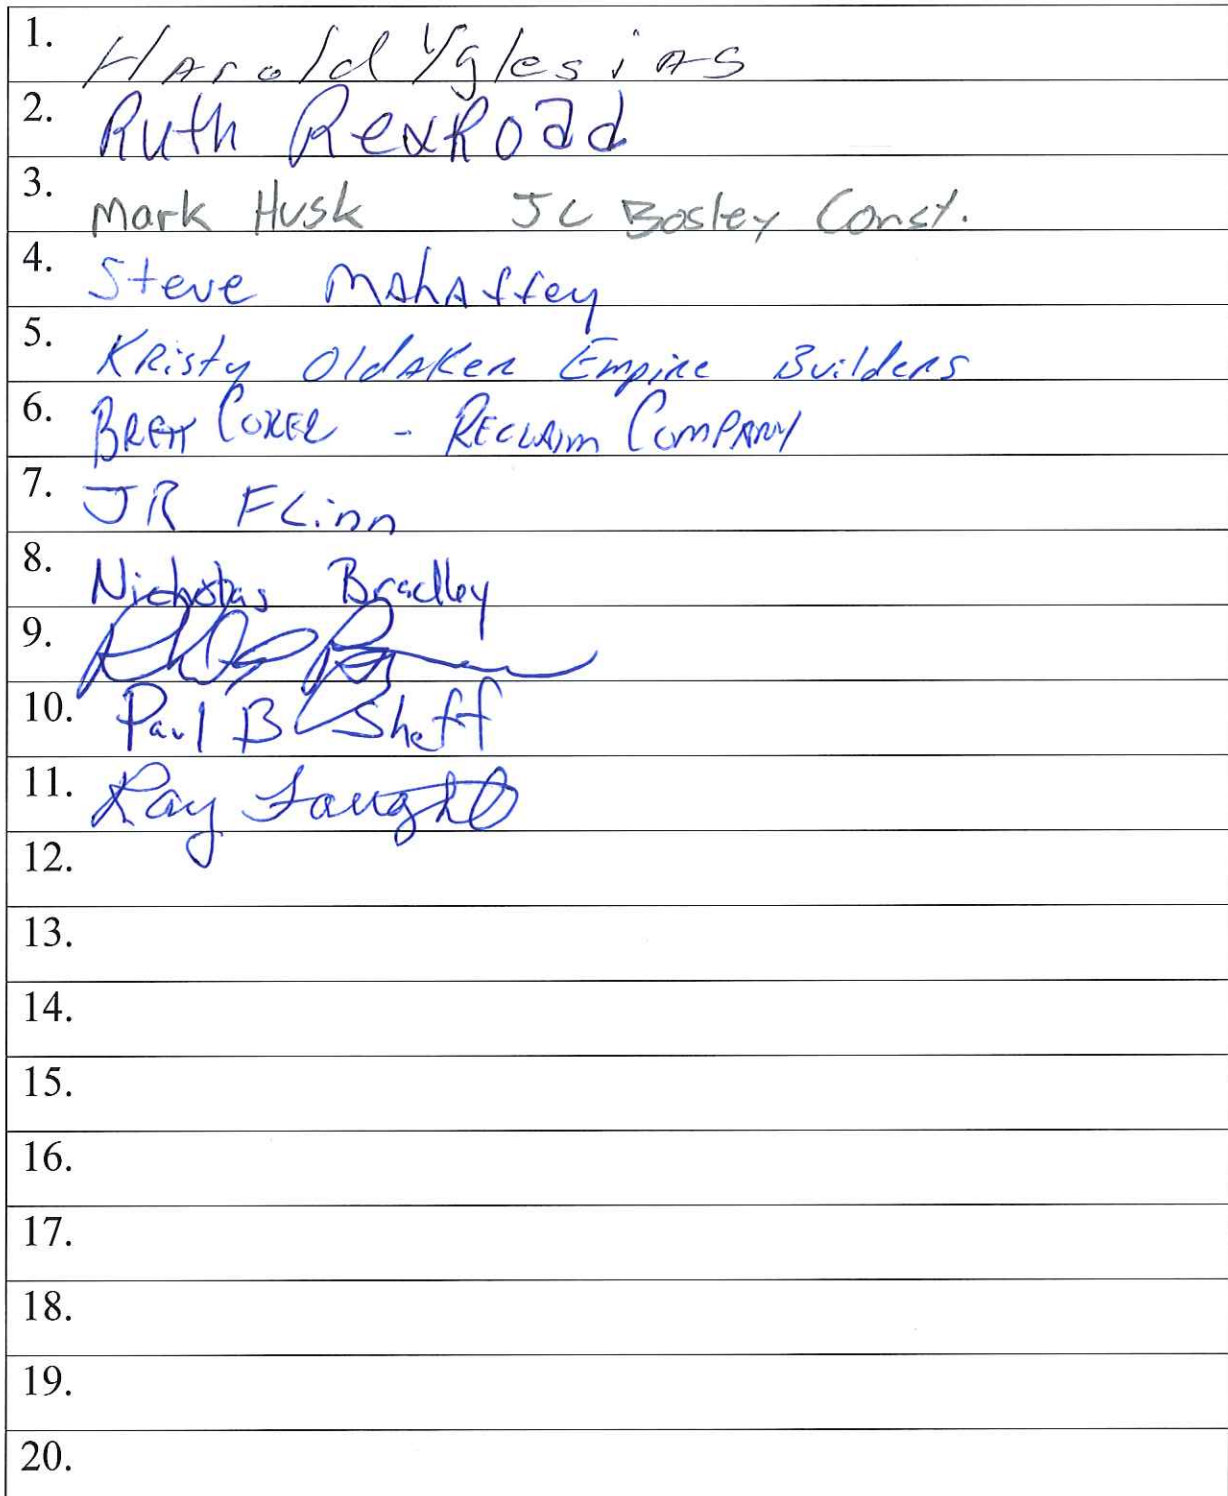 1. Harold Yglesias
2. Ruth RexRoad
3. Mark Husk JC Bosley Const.
4. Steve Mahaffey
5. Kristy Oldaker Empire Builders
6. Brett Coker - Reclaim Company
7. JR Flinn
8. Nicholas Bradley
9.
10. Paul B Sheff
11. Ray Faught
12.
13.
14.
15.
16.
17.
18.
19.
20.